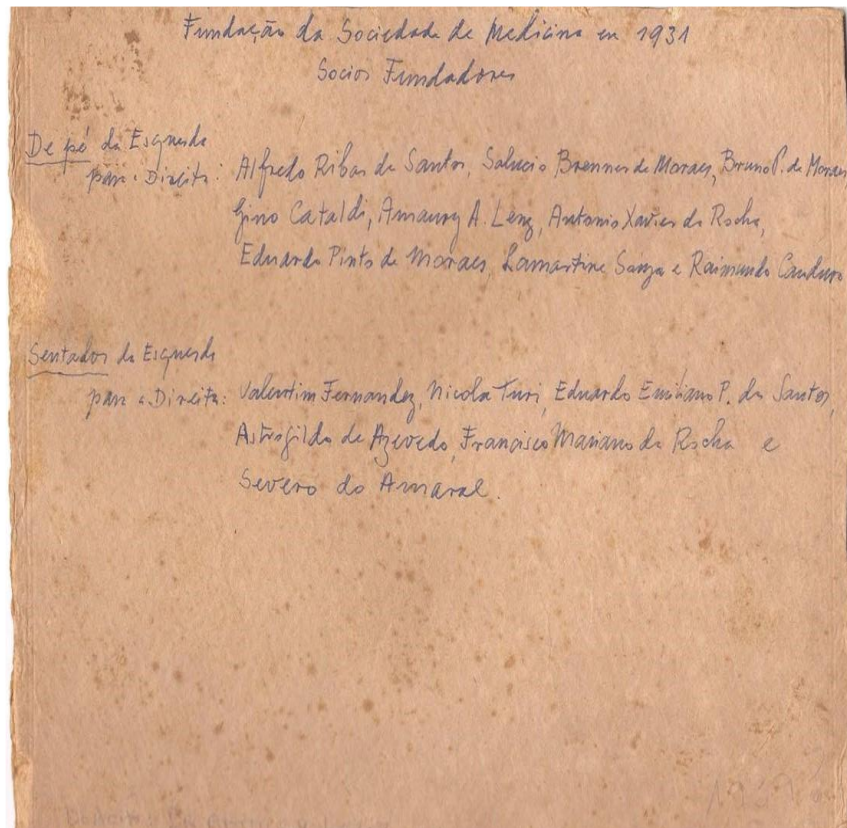 Fundação da Sociedade de Medicina en 1931
Socios Fundadores
De pé da Esquerda
para a Direita: Alfredo Ribas de Santos, Salucio Brenner de Moraes, Bruno P. de Moraes
Gino Cataldi, Amaury A. Lenz, Antonio Xavier da Rocha,
Eduardo Pinto de Moraes, Lamartine Souza e Raimundo Cauduro
Sentados da Esquerda
para a Direita: Valentim Fernandez, Nicola Turi, Eduardo Emiliano P. dos Santos,
Astrogildo de Azevedo, Francisco Mariano da Rocha e
Severo do Amaral.